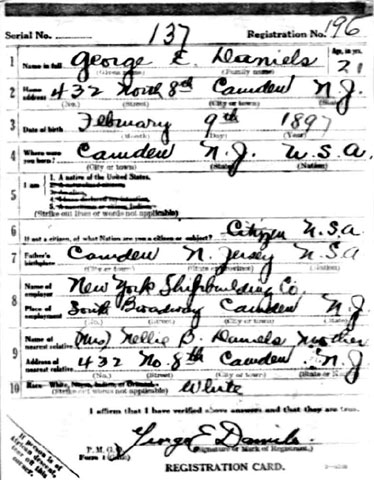 Serial No. 137 Registration No. 196
1 George E. Daniels Age, in yrs. 21
Name in full (Given name) (Family name)
2 Home address 432 North 8th Camden N.J.
(No.) (Street) (City or town) (State)
3 Date of birth February 9th 1897
(Month) (Day) (Year)
4 Where were you born? Camden N.J. U.S.A.
(City or town) (State) (Nation)
5 I am 1. A native of the United States.
(Strike out lines or words not applicable)
6 Citizen U.S.A
If not a citizen, of what Nation are you a citizen or subject?
7 Father's birthplace Camden N. Jersey U.S.A
(City or town) (State or province) (Nation)
8 Name of employer New York Shipbuilding Co.
Place of employment South Broadway Camden N.J.
(No.) (Street) (City or town) (State)
9 Name of nearest relative (Mrs) Nellie B. Daniels Mother
Address of nearest relative 432 No. 8th Camden N.J
(No.) (Street) (City or town) (State or Nation)
10 Race— White
(Strike out words not applicable)
I affirm that I have verified above answers and that they are true.
George E Daniels
P. M. G. O.
Form 1
(Signature or Mark of Registrant.)
REGISTRATION CARD.
If person is of African